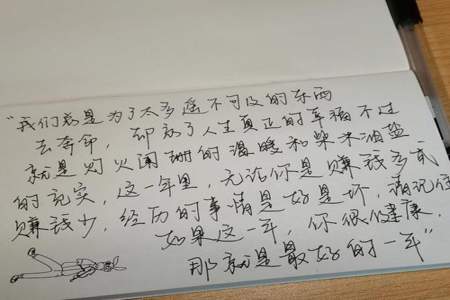 “我们总是为了太多遥不可及的东西
去奔命，却忘了人生真正的幸福不过
就是灯火阑珊的温暖和柴米油盐
的充实，这一年里，无论你是赚钱多或
赚钱少，经历的事情是好是坏，请记住
如果这一年，你很健康，
那就是最好的一年”